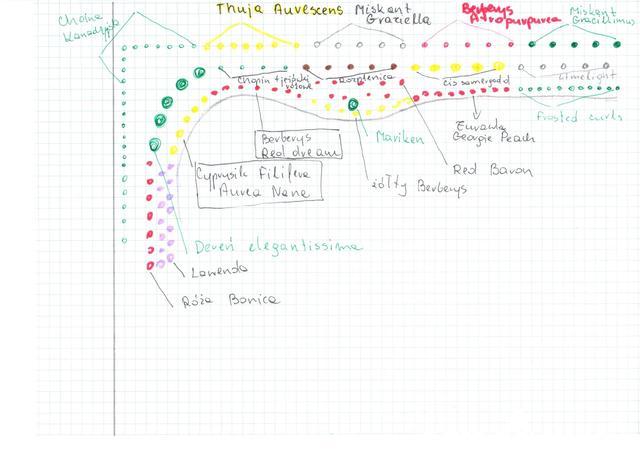 Choina
kanadyjska
Thuja Aurescens
Miskant
Graziella
Berberys
Atropurpurea
Miskant
Gracillimus
Chopin + jeżówki
różowe
Rozplenica
Cis samergold
Limelight
Frosted curls
Berberys
Red dream
Mariken
Żurawka
Georgie Peach
Cyprysik Filifera
Aurea Nana
żółty Berberys
Red Baron
Dereń elegantissima
Lawenda
Róża Bonica